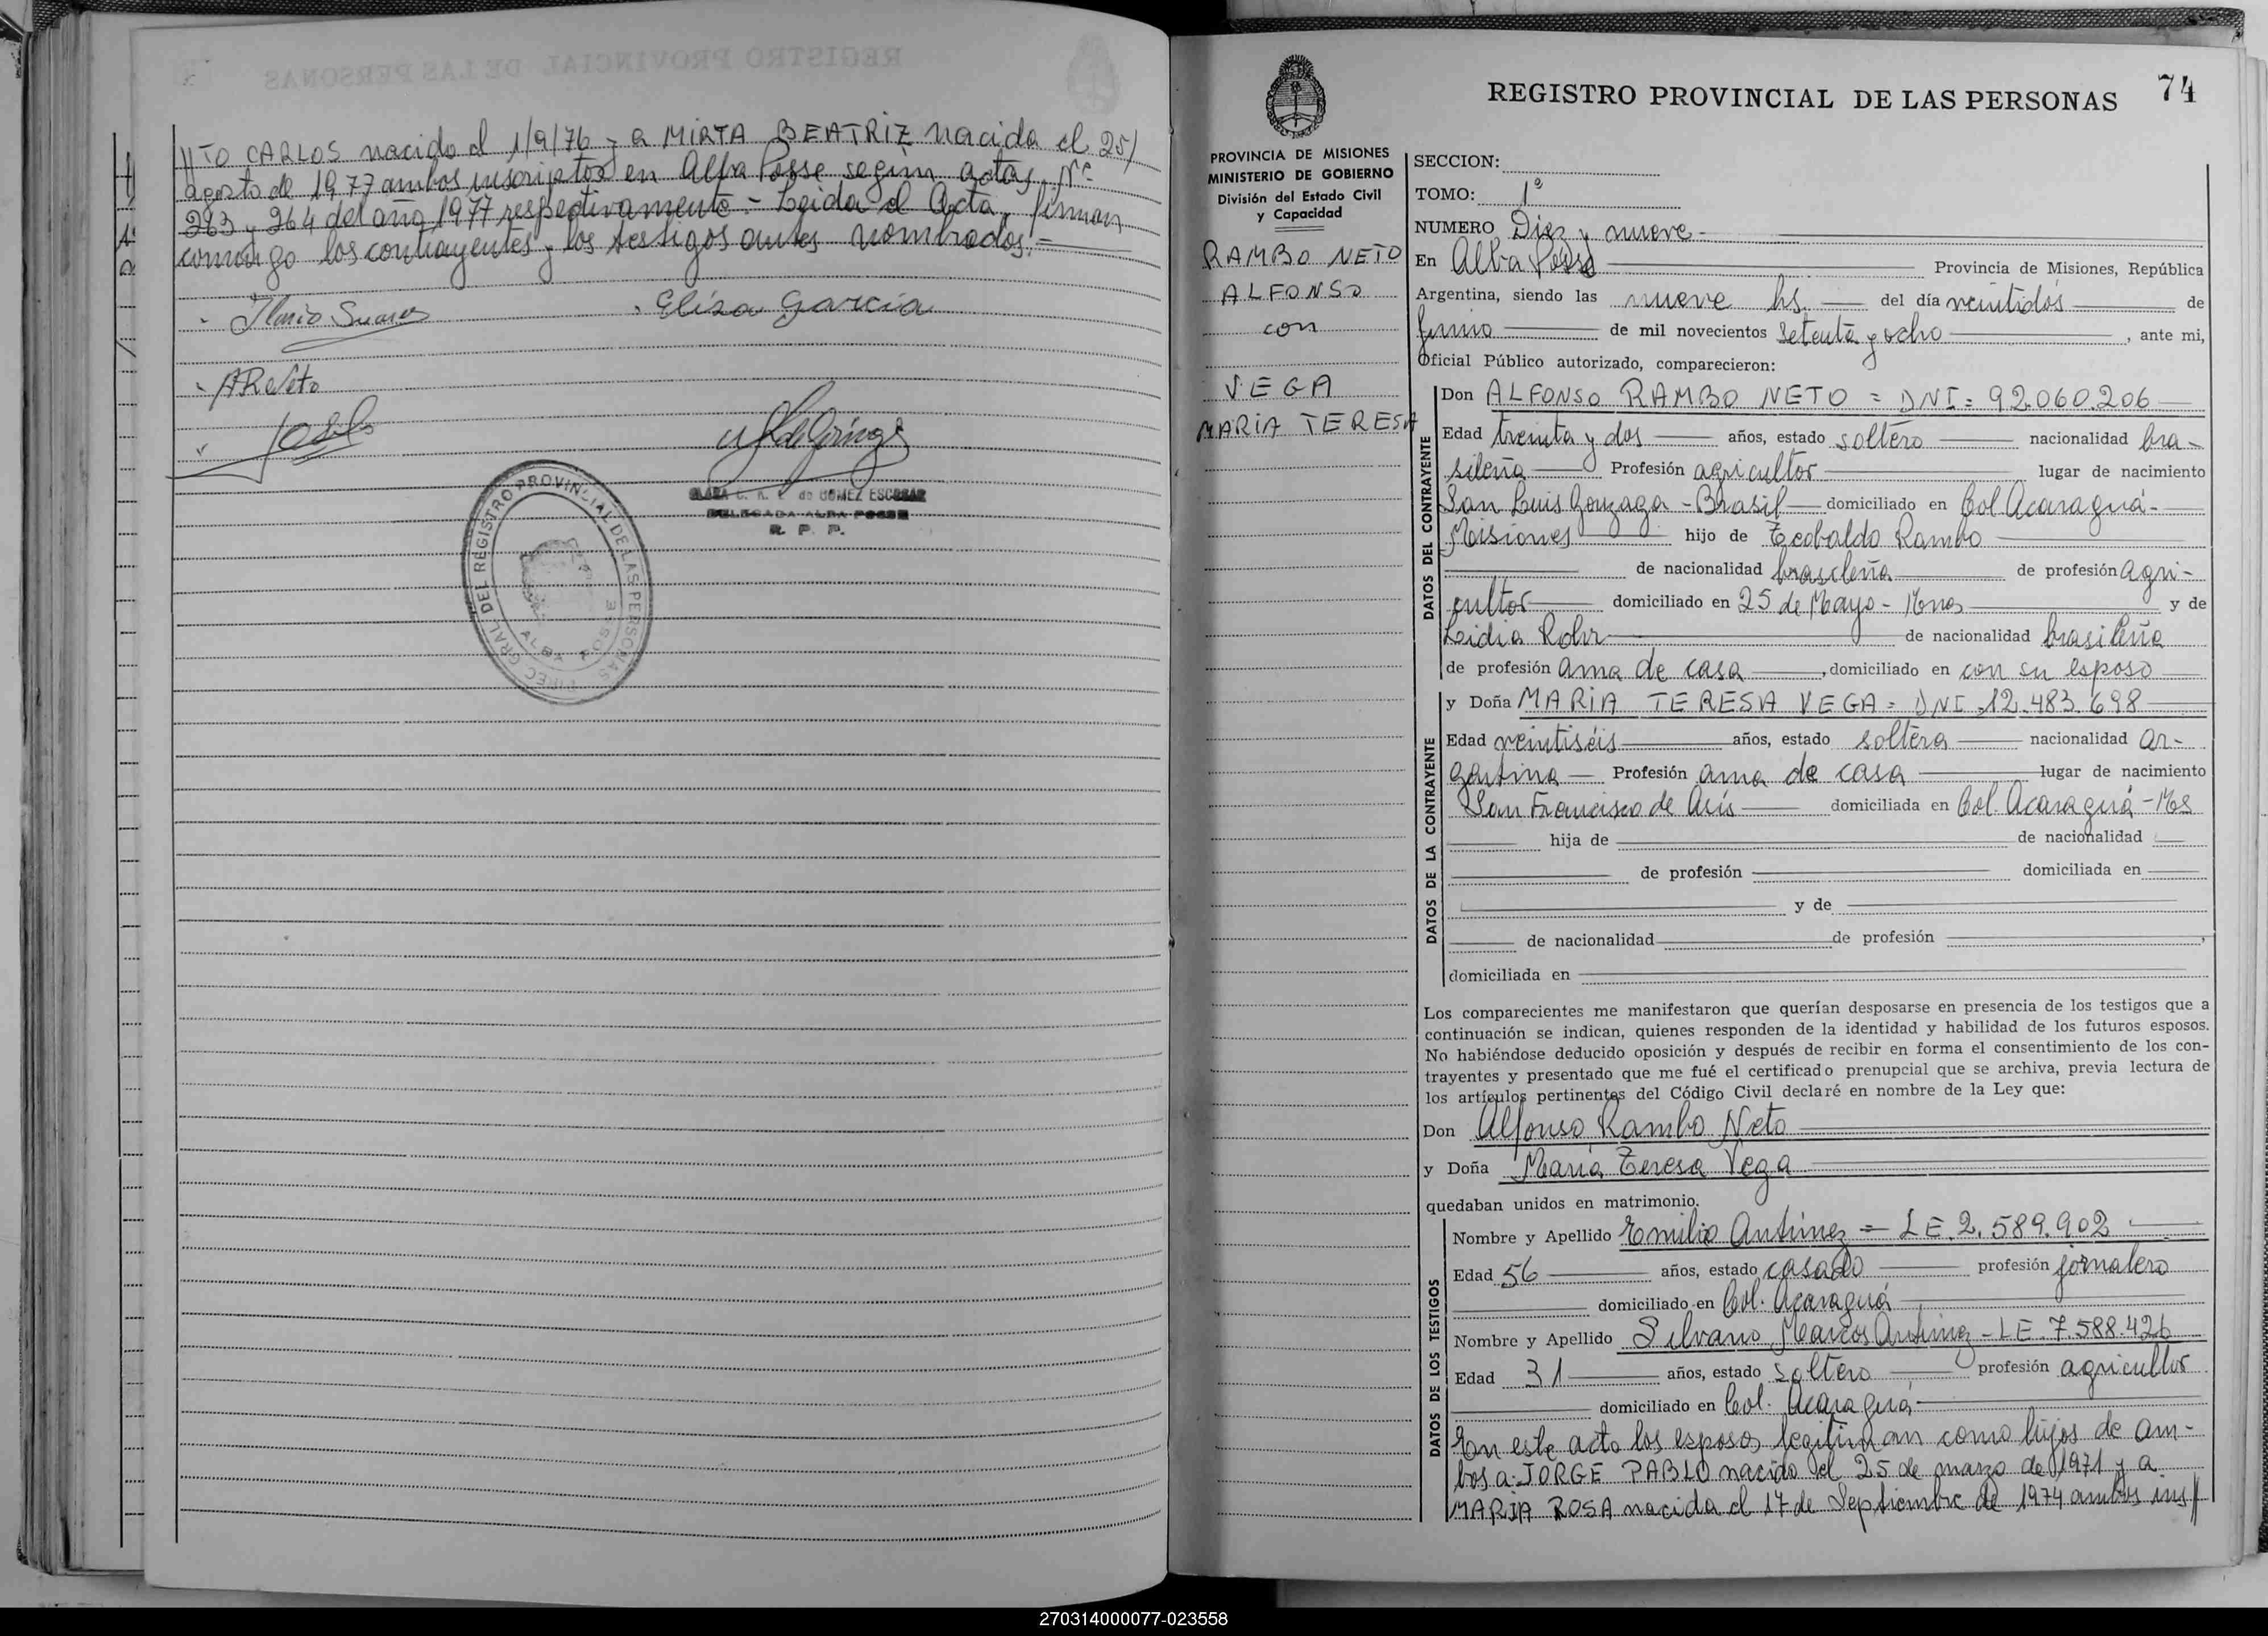 //TO CARLOS nacido el 1/9/76 y a MIRTA BEATRIZ nacida el 25/
agosto de 1977 ambos inscriptos en Alba Posse según actas Nº
263 y 264 del año 1977 respectivamente.- Leida el Acta, firman
conmigo los contrayentes y los testigos antes nombrados.=
Ilario Suarez
Elisa Garcia
ARNeto
DELEGADA ALBA POSSE
R. P. P.
DIREC. GRAL. DEL REGISTRO PROVINCIAL DE LAS PERSONAS
ALBA POSSE
REGISTRO PROVINCIAL DE LAS PERSONAS
74
PROVINCIA DE MISIONES
MINISTERIO DE GOBIERNO
División del Estado Civil
y Capacidad
RAMBO NETO
ALFONSO
con
VEGA
MARIA TERESA
SECCION:
TOMO: 1º
NUMERO Diez y nueve-
En Alba Posse Provincia de Misiones, República
Argentina, siendo las nueve hs. del día veintidos de
junio de mil novecientos setenta y ocho, ante mi,
Oficial Público autorizado, comparecieron:
DATOS DEL CONTRAYENTE
Don ALFONSO RAMBO NETO = DNI= 92.060.206
Edad treinta y dos años, estado soltero nacionalidad bra-
sileña Profesión agricultor lugar de nacimiento
San Luis Gonzaga - Brasil domiciliado en Col. Acaraguá-
Misiones hijo de Teobaldo Rambo
de nacionalidad brasileña de profesión agri-
cultor domiciliado en 25 de Mayo - Mnes y de
Leidia Rohr de nacionalidad brasileña
de profesión ama de casa, domiciliado en con su esposo
DATOS DE LA CONTRAYENTE
y Doña MARIA TERESA VEGA = DNI =12.483.698
Edad veintiséis años, estado soltera nacionalidad ar-
gentina Profesión ama de casa lugar de nacimiento
San Francisco de Asís domiciliada en Col. Acaraguá - Mes
hija de de nacionalidad
de profesión domiciliada en
y de
de nacionalidad de profesión ,
domiciliada en
Los comparecientes me manifestaron que querían desposarse en presencia de los testigos que a
continuación se indican, quienes responden de la identidad y habilidad de los futuros esposos.
No habiéndose deducido oposición y después de recibir en forma el consentimiento de los con-
trayentes y presentado que me fué el certificado prenupcial que se archiva, previa lectura de
los artículos pertinentes del Código Civil declaré en nombre de la Ley que:
Don Alfonso Rambo Neto
y Doña María Teresa Vega
quedaban unidos en matrimonio.
DATOS DE LOS TESTIGOS
Nombre y Apellido Emilio Antunez = LE. 2.589.902
Edad 56 años, estado casado profesión jornalero
domiciliado en Col. Acaraguá
Nombre y Apellido Silvano Marcos Antunez - LE. 7.588.426
Edad 31 años, estado soltero profesión agricultor
domiciliado en Col. Acaraguá
En este acto los esposos legitiman como hijos de am-
bos a: JORGE PABLO nacido el 25 de marzo de 1971 y a
MARIA ROSA nacida el 17 de Septiembre de 1974 ambos ins//
270314000077-023558